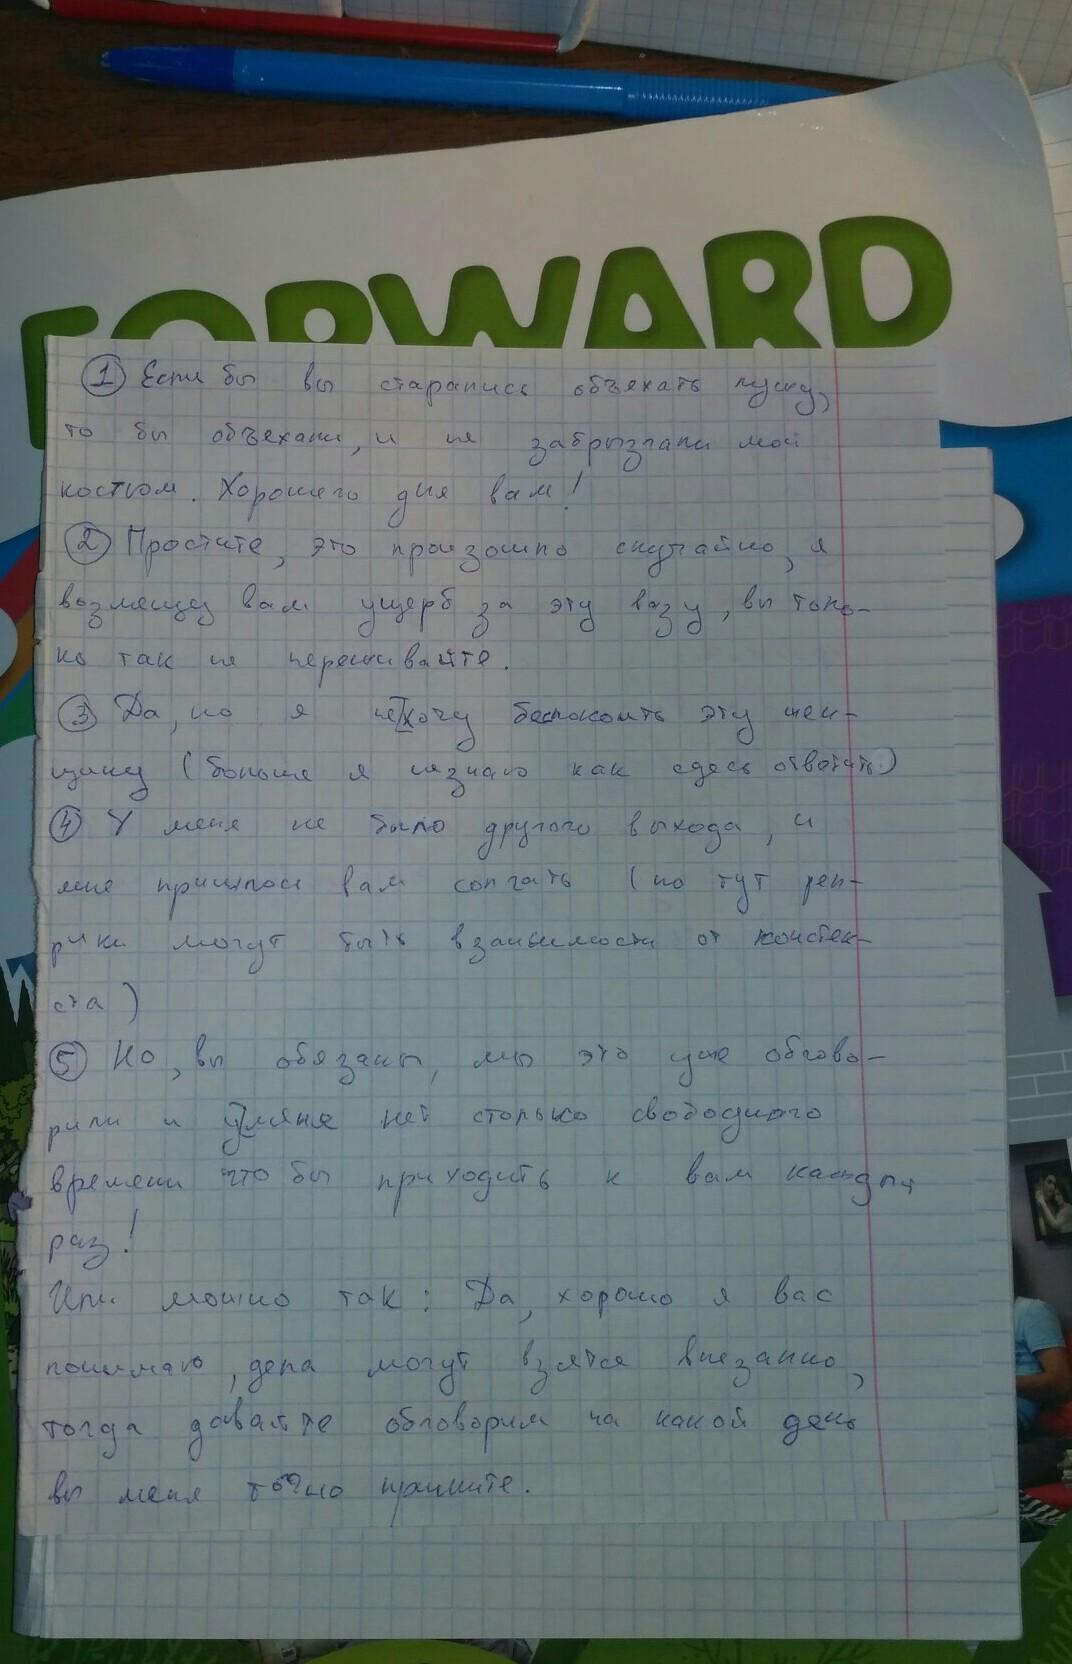 FORWARD
① Если бы вы старались объехать лужу,
то бы объехали, и не забрызгали мой
костюм. Хорошего дня вам!
② Простите, это произошло случайно, я
возмещу вам ущерб за эту вазу, вы толь-
ко так не переживайте.
③ Да, но я не хочу беспокоить эту жен-
щину (больше я незнаю как сдесь ответить)
④ У меня не было другого выхода, и
мне пришлось вам солгать (но тут реп-
лики могут быть от
ста)
⑤ Но, вы обязаны, мы это уже обгово-
рили и у меня нет столько свободного
времени что бы приходить к вам каждый
раз!
Или можно так: Да, хорошо я вас
понимаю, дела могут взятся внезапно,
тогда давайте обговорим на какой день
вы меня точно примите.